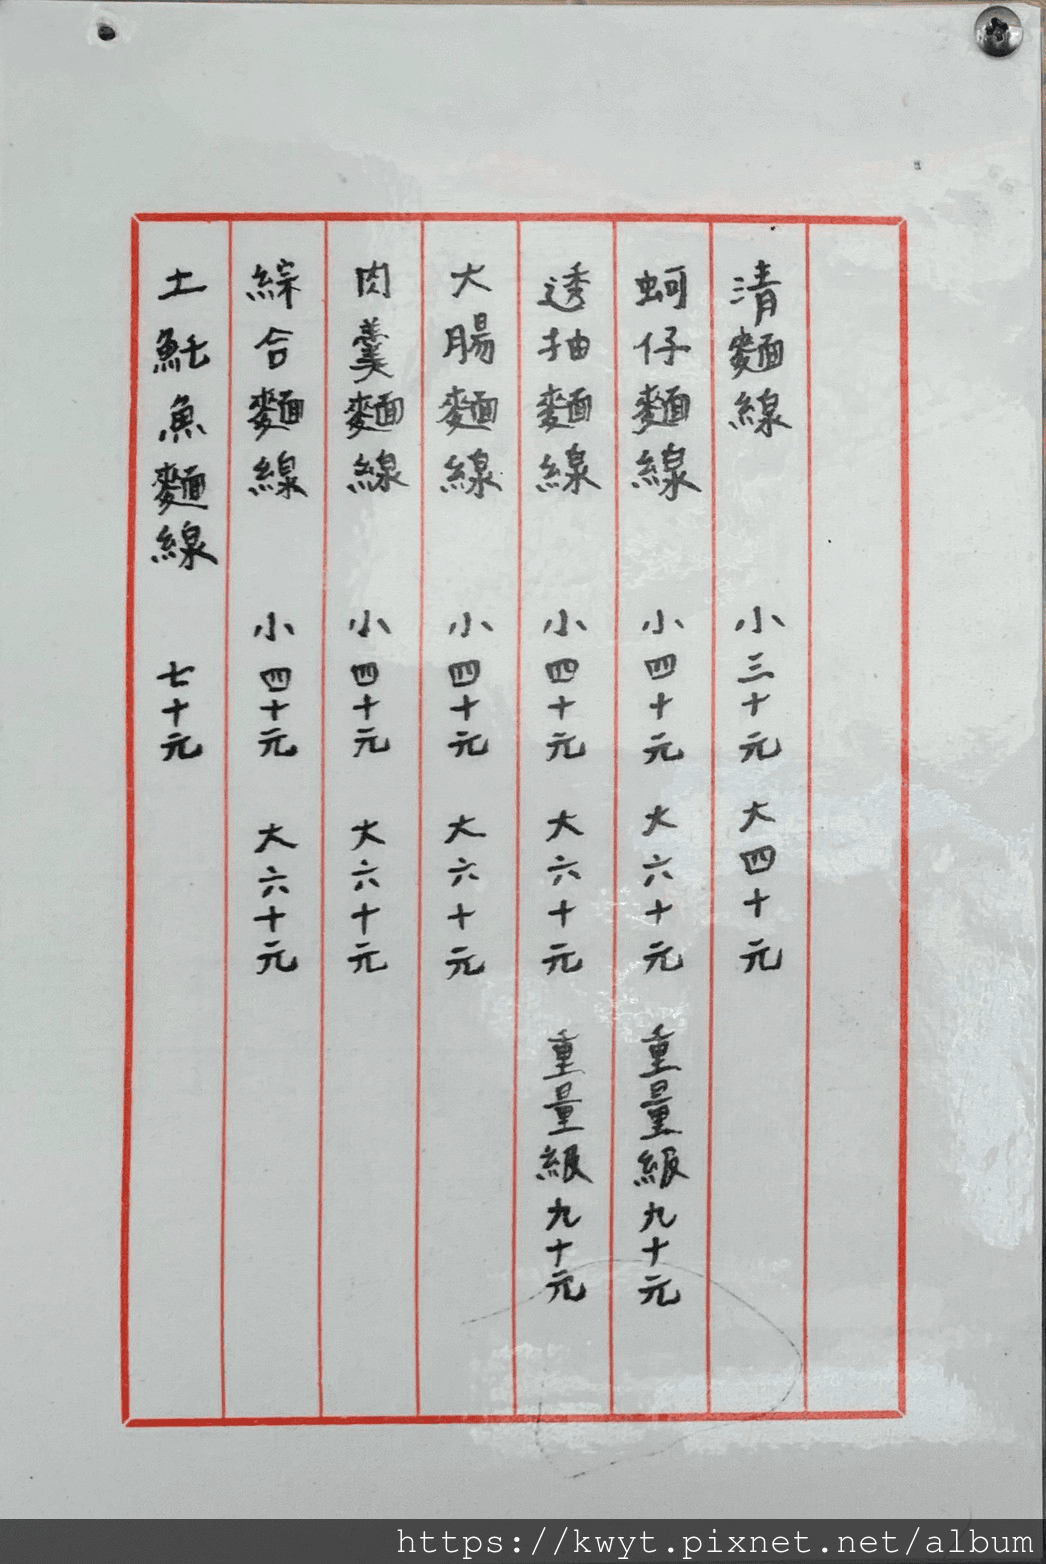 清麵線 小三十元 大四十元
蚵仔麵線 小四十元 大六十元 重量級九十元
透抽麵線 小四十元 大六十元 重量級九十元
大腸麵線 小四十元 大六十元
肉羹麵線 小四十元 大六十元
綜合麵線 小四十元 大六十元
土魠魚麵線 七十元
https://kwyt.pixnet.net/album